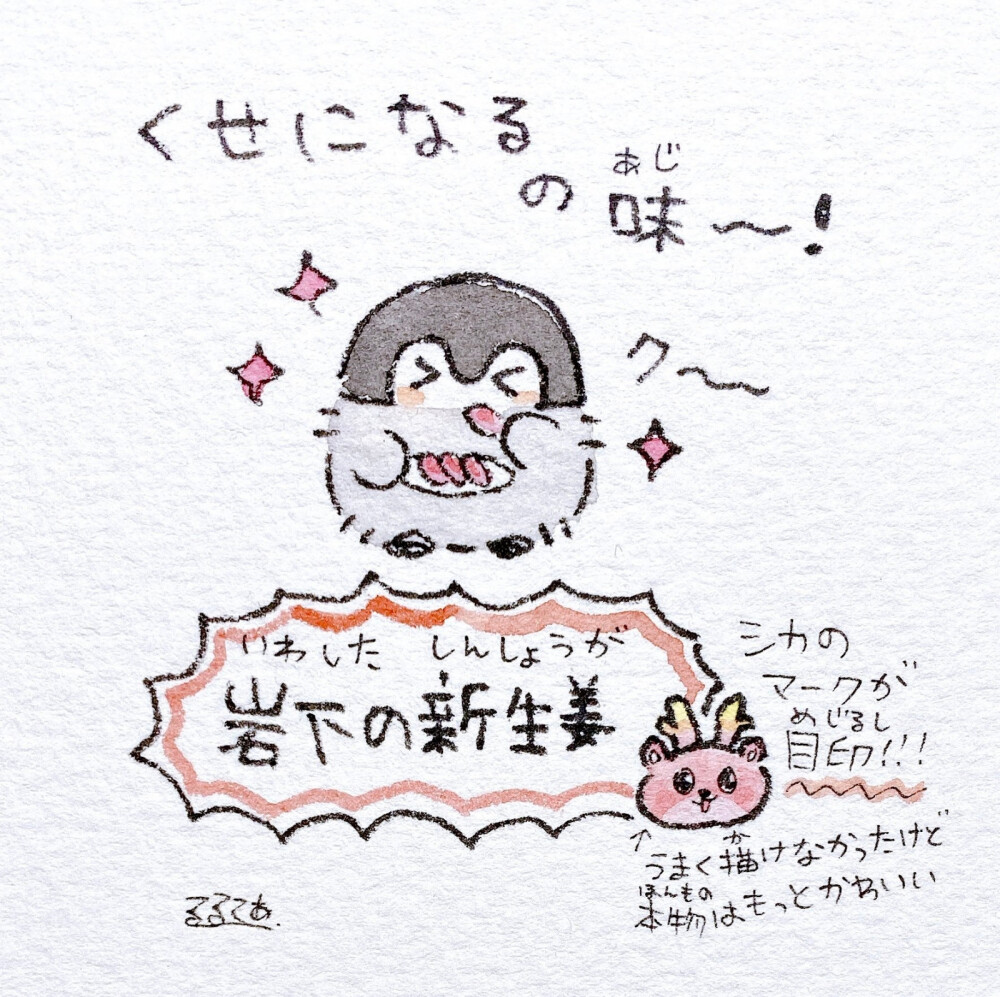 くせになる
の味〜!
あじ
ク〜
いわした しんしょうが
岩下の新生姜
シカの
マークが
めじるし
目印!!!
↑
か
うまく描けなかったけど
ほんもの
本物はもっとかわいい
るるてあ.